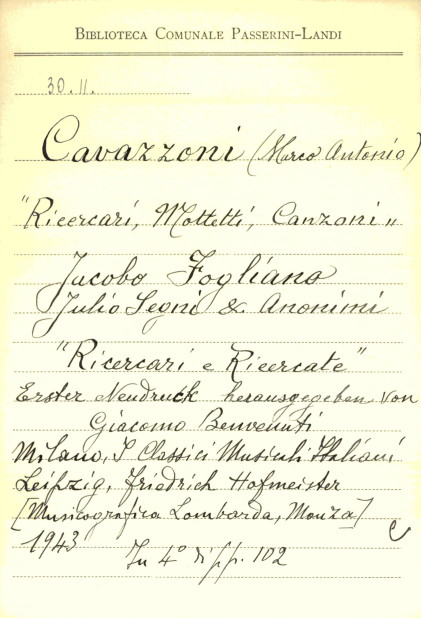 BIBLIOTECA COMUNALE PASSERINI-LANDI
30.11.
Cavazzoni (Marco Antonio)
"Ricercari, Mottetti, Canzoni"
Jacobo Fogliano
Julio Segni & Anonimi
"Ricercari e Ricercate"
Erster Neudruck herausgegeben von
Giacomo Benvenuti
Milano, I Classici Musicali Italiani
Leipzig, Friedrich Hofmeister
[Musicografica Lombarda, Monza]
1943
In 4° di pp. 102